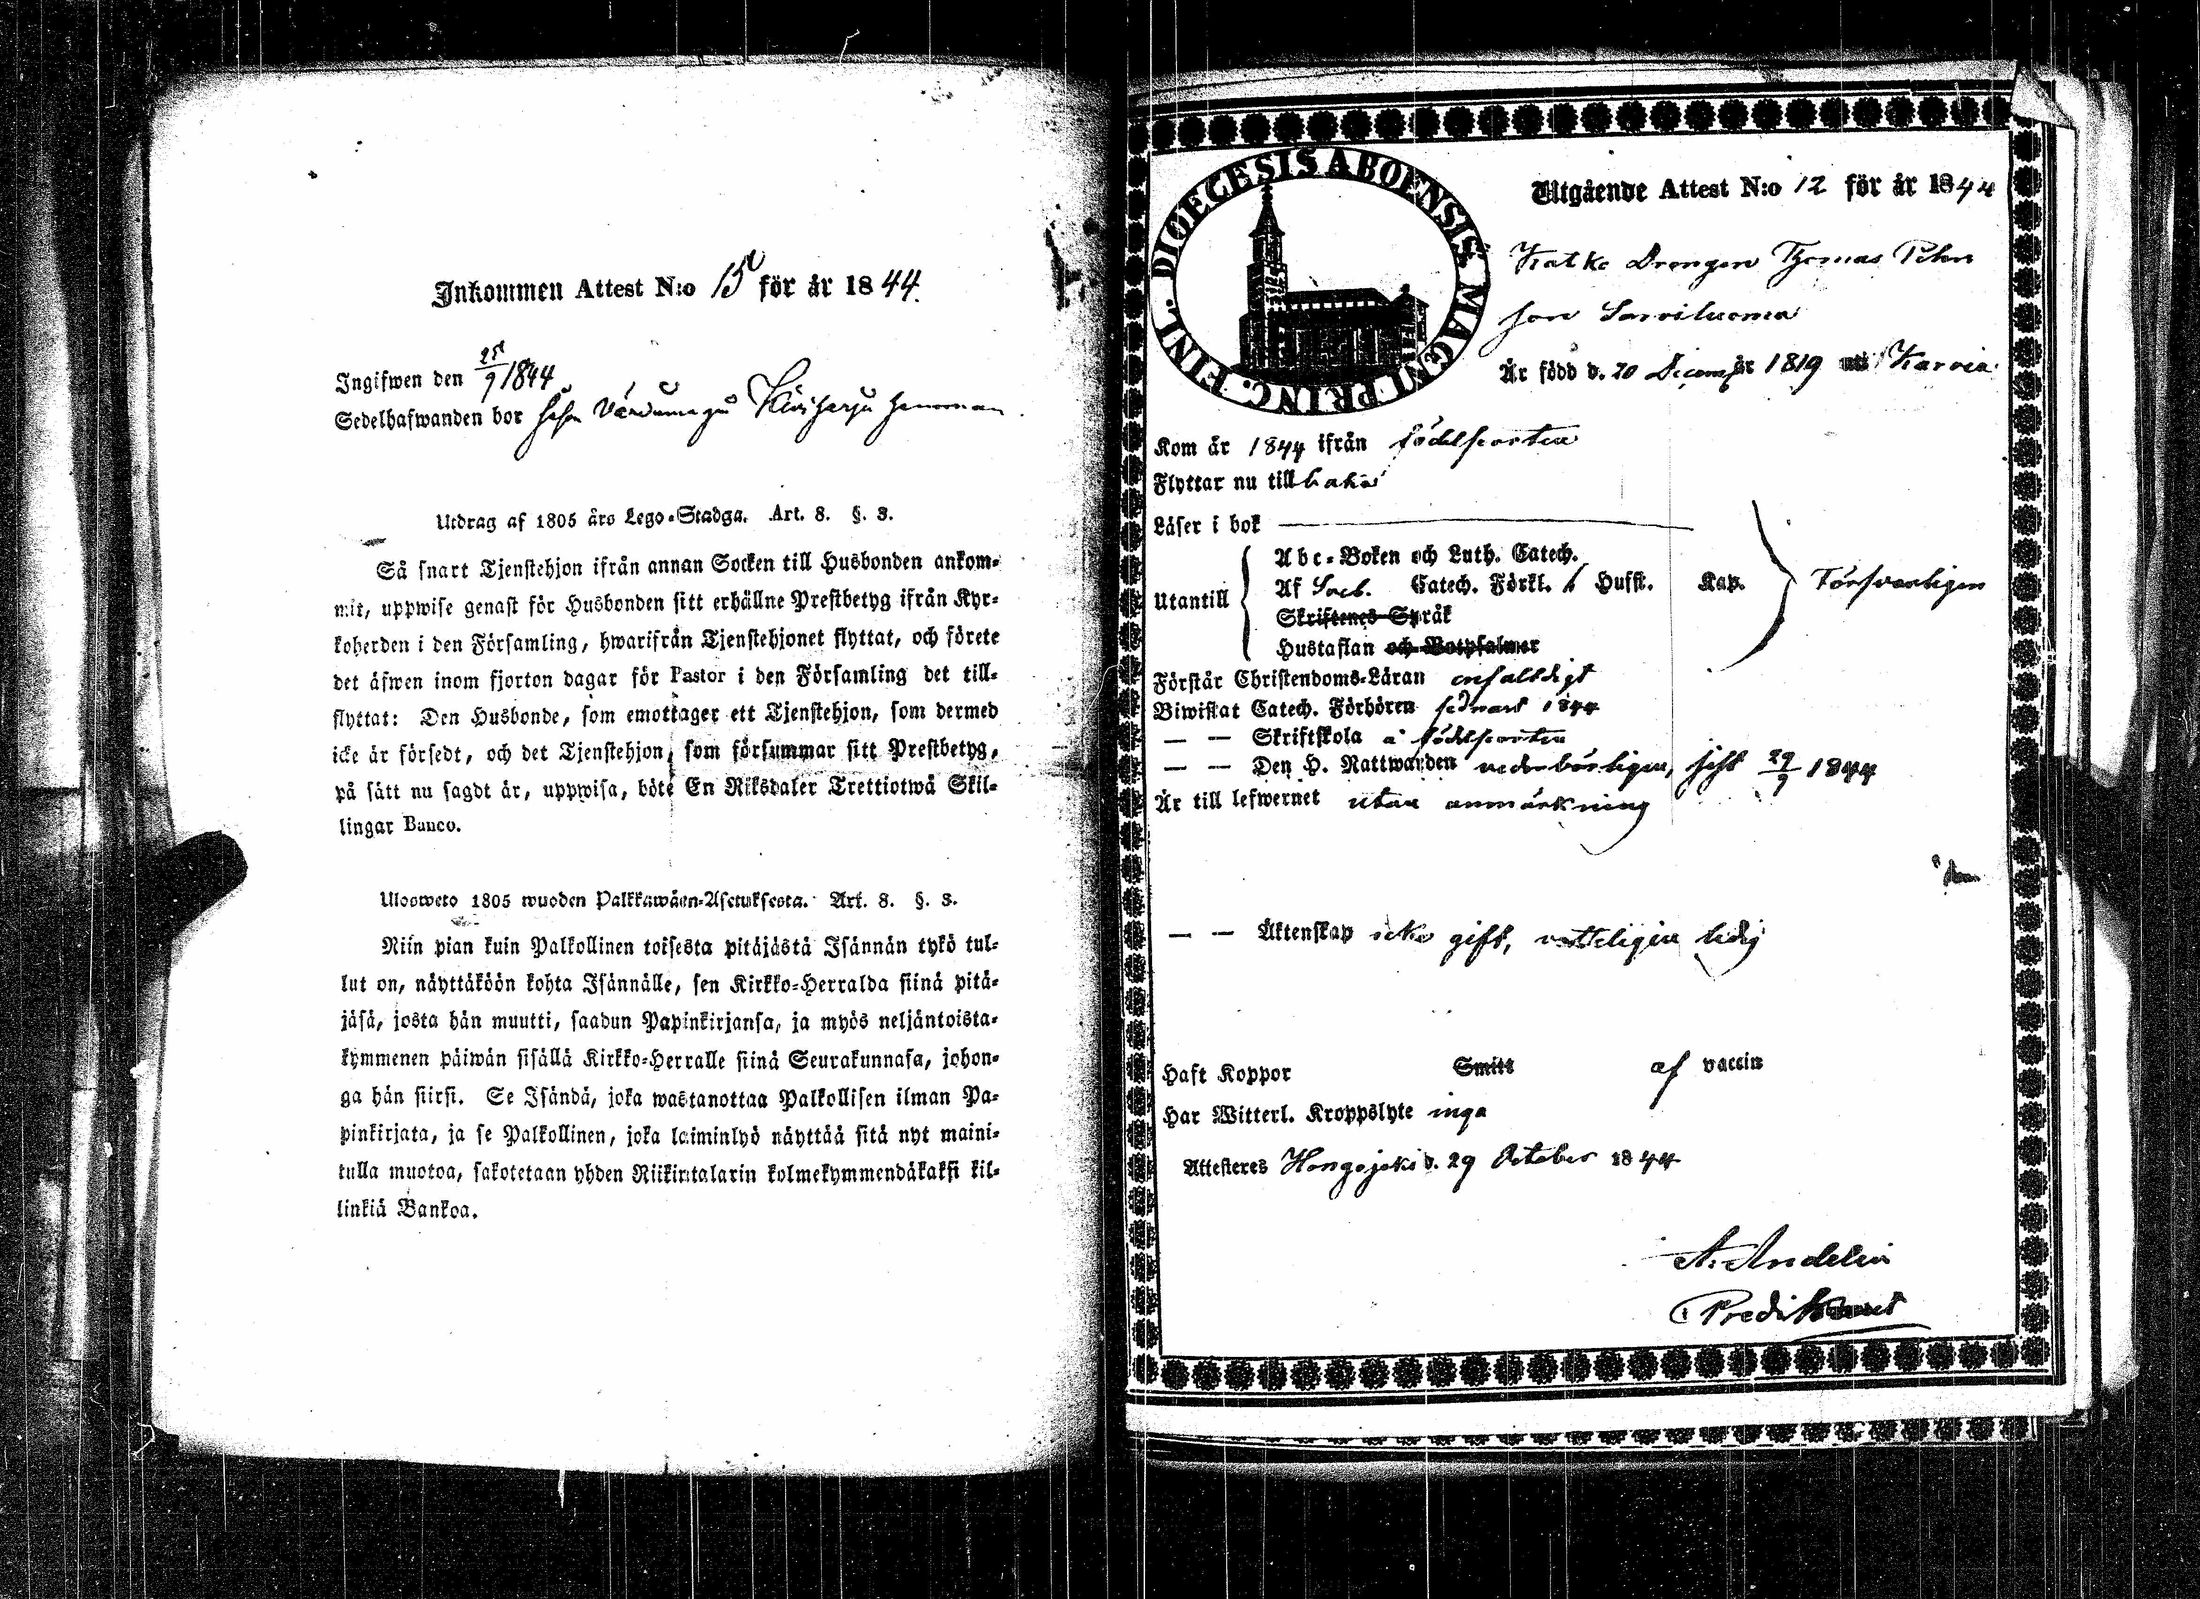 Inkommen Attest N:o 15 för år 1844.
Ingifwen den 1844
Sedelhafwanden bor
Utdrag af 1805 års Lego-Stadga. Art. 8. §. 3.
Så snart Tjenstehjon ifrån annan Socken till Husbonden ankom-
mit, uppwise genast för Husbonden sitt erhållne Prestbetyg ifrån Kyr-
koherden i den Församling, hwarifrån Tjenstehjonet flyttat, och förete
det äfwen inom fjorton dagar för Pastor i den Församling det till-
flyttat: Den Husbonde, som emottager ett Tjenstehjon, som dermed
icke är försedt, och det Tjenstehjon, som försummar sitt Prestbetyg,
på sätt nu sagdt är, uppwisa, böte En Riksdaler Trettiotwå Skil-
lingar Banco.
Ulosweto 1805 wuoden Palkkawäen-Asetuksesta. Art. 8. §. 3.
Niin pian kuin Palkollinen toisesta pitäjästä Isännän tykö tul-
lut on, näyttäköön kohta Isännälle, sen Kirkko-Herralda siinä pitä-
jäsä, josta hän muutti, saadun Papinkirjansa, ja myös neljäntoista-
kymmenen päiwän sisällä Kirkko-Herralle siinä Seurakunnasa, johon-
ga hän siirsi. Se Isändä, joka wastanottaa Palkollisen ilman Pa-
pinkirjata, ja se Palkollinen, joka laiminlyö näyttää sitä nyt maini-
tulla muotoa, sakotetaan yhden Riikintalarin kolmekymmendäkaksi kil-
linkiä Bankoa.
DIOECESIS ABOENSIS MAGNI PRINC. FINL.
Utgående Attest N:o 12 för år 1844
Drengen Thomas
son Sarviluoma
Är född d. 20 Decemb år 1819 uti Karvia
Kom år 1844 ifrån födelseorten
Flyttar nu tillbaka
Läser i bok
Utantill
Abc-Boken och Luth. Catech.
Af Sveb. Catech. Förkl. Husst. Kap.
Försvarligen
Skriftenes Språk
Hustaflan och Botpsalmer
Förstår Christendoms-Läran enfaldigt
Biwistat Catech. Förhören 1844
— — Skriftskola i födelseorten
— — Den H. Nattwarden vederbörligen, sist 29/9 1844
Är till lefwernet utan anmärkning
— — Äktenskap icke gift, ledig
Haft Koppor Smitt af vaccin
Har Witterl. Kroppslyte inga
Attesteres Hongojoki d. 29 October 1844
A. Andelin
Predikant